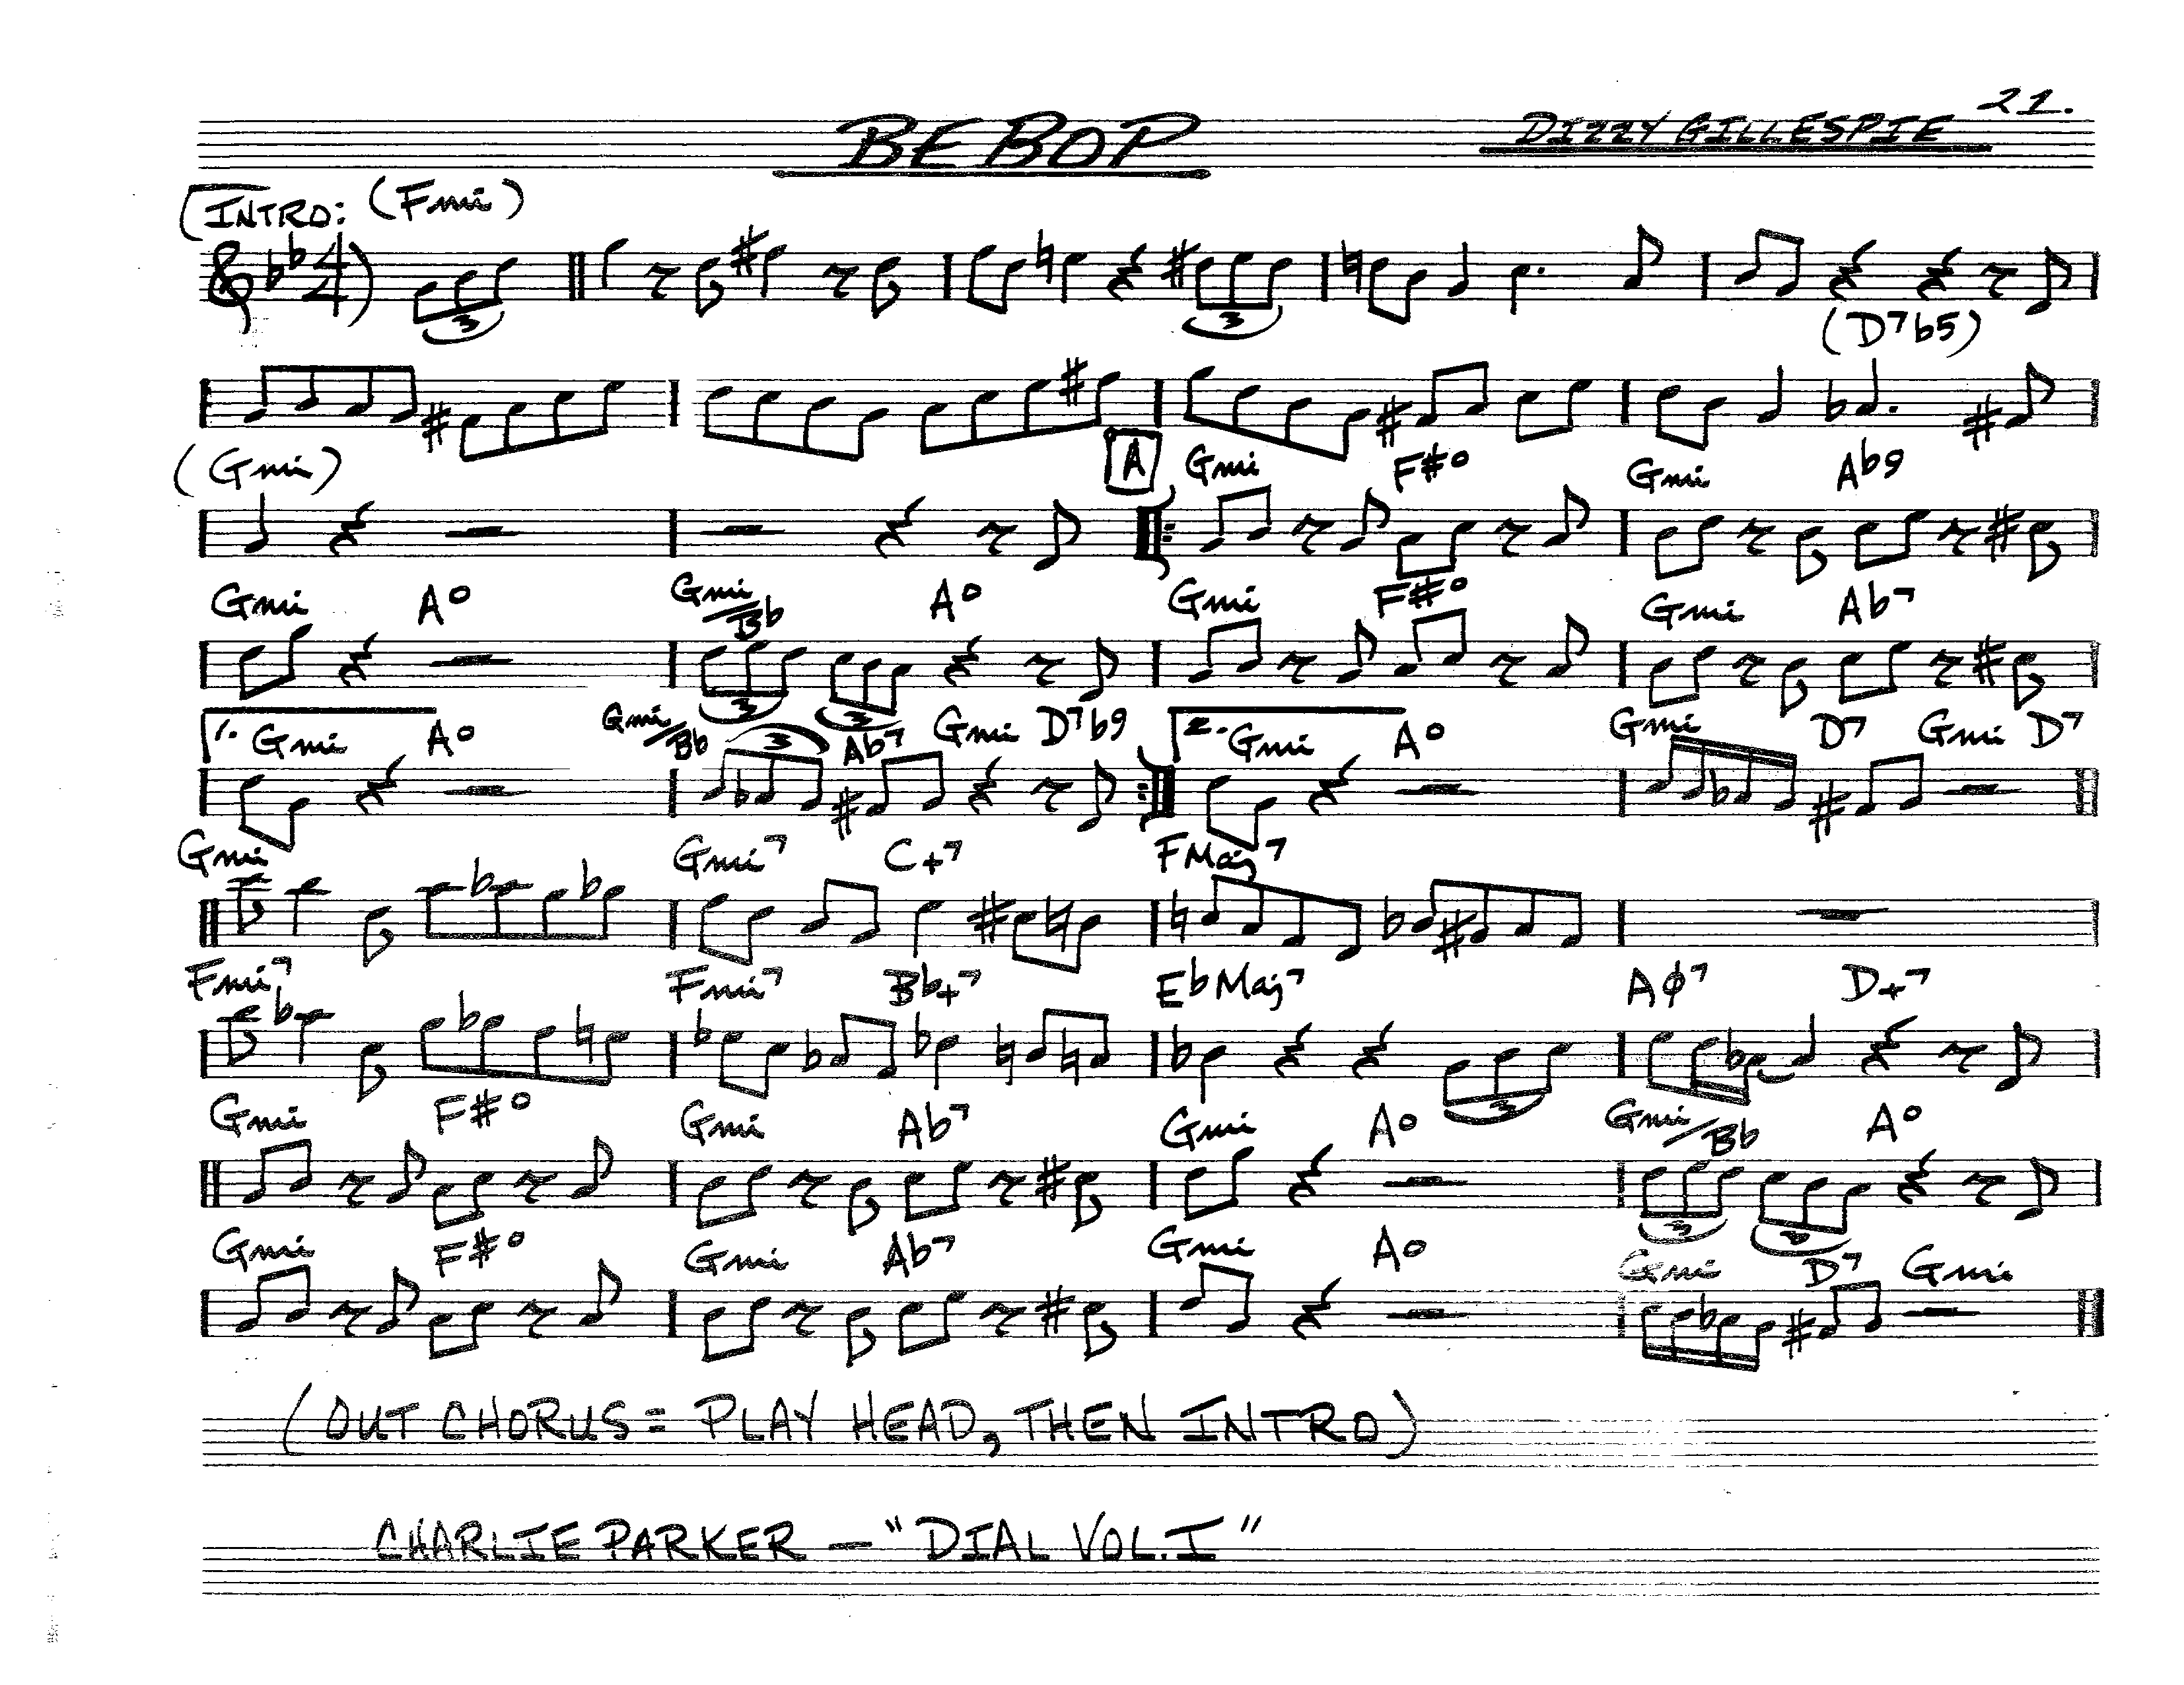 BE BOP
DIZZY GILLESPIE 21.
(INTRO: (Fmi)
4/4
3 3
(D7b5)
(Gmi) A Gmi F#o Gmi Ab9
Gmi Ao Gmi/Bb Ao Gmi F#o Gmi Ab7
3 3
1. Gmi Ao Gmi/Bb 3 Ab7 Gmi D7b9 2. Gmi Ao Gmi D7 Gmi D7
Gmi Gmi7 C+7 FMaj7
Fmi7 Fmi7 Bb+7 EbMaj7 Aø7 D+7
3
Gmi F#o Gmi Ab7 Gmi Ao Gmi/Bb Ao
3 3
Gmi F#o Gmi Ab7 Gmi Ao Gmi D7 Gmi
(OUT CHORUS = PLAY HEAD, THEN INTRO)
CHARLIE PARKER — "DIAL VOL. I"